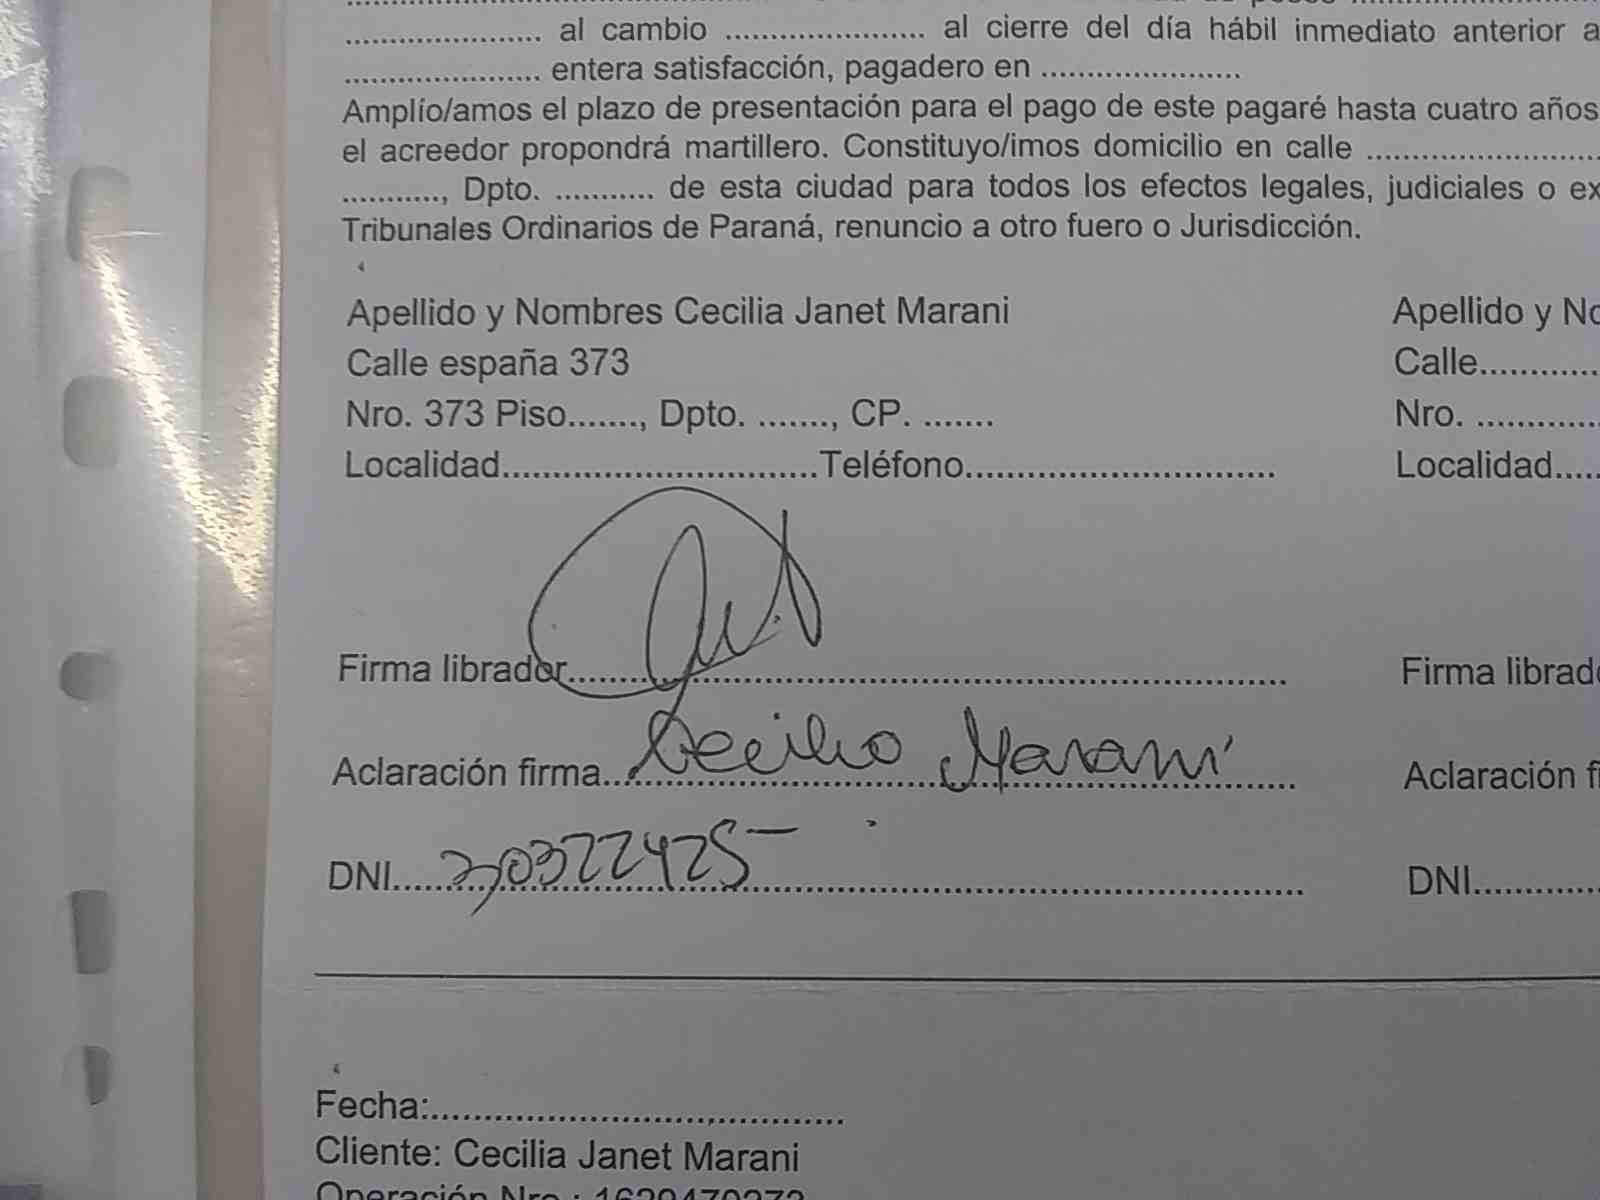 ..................... al cambio ...................... al cierre del día hábil inmediato anterior a
..................... entera satisfacción, pagadero en ......................
Amplío/amos el plazo de presentación para el pago de este pagaré hasta cuatro años
el acreedor propondrá martillero. Constituyo/imos domicilio en calle ..........................
..........., Dpto. ........... de esta ciudad para todos los efectos legales, judiciales o ex
Tribunales Ordinarios de Paraná, renuncio a otro fuero o Jurisdicción.
Apellido y Nombres Cecilia Janet Marani
Calle españa 373
Nro. 373 Piso......., Dpto. ......., CP. .......
Localidad..............................Teléfono..............................
Firma librador......................................................................
Aclaración firma... Cecilia Marani
DNI...... 30322425
Apellido y No
Calle............
Nro. .............
Localidad.....
Firma librado
Aclaración fi
DNI.............
Fecha:.........................................
Cliente: Cecilia Janet Marani
Operación Nro.: 1629470272